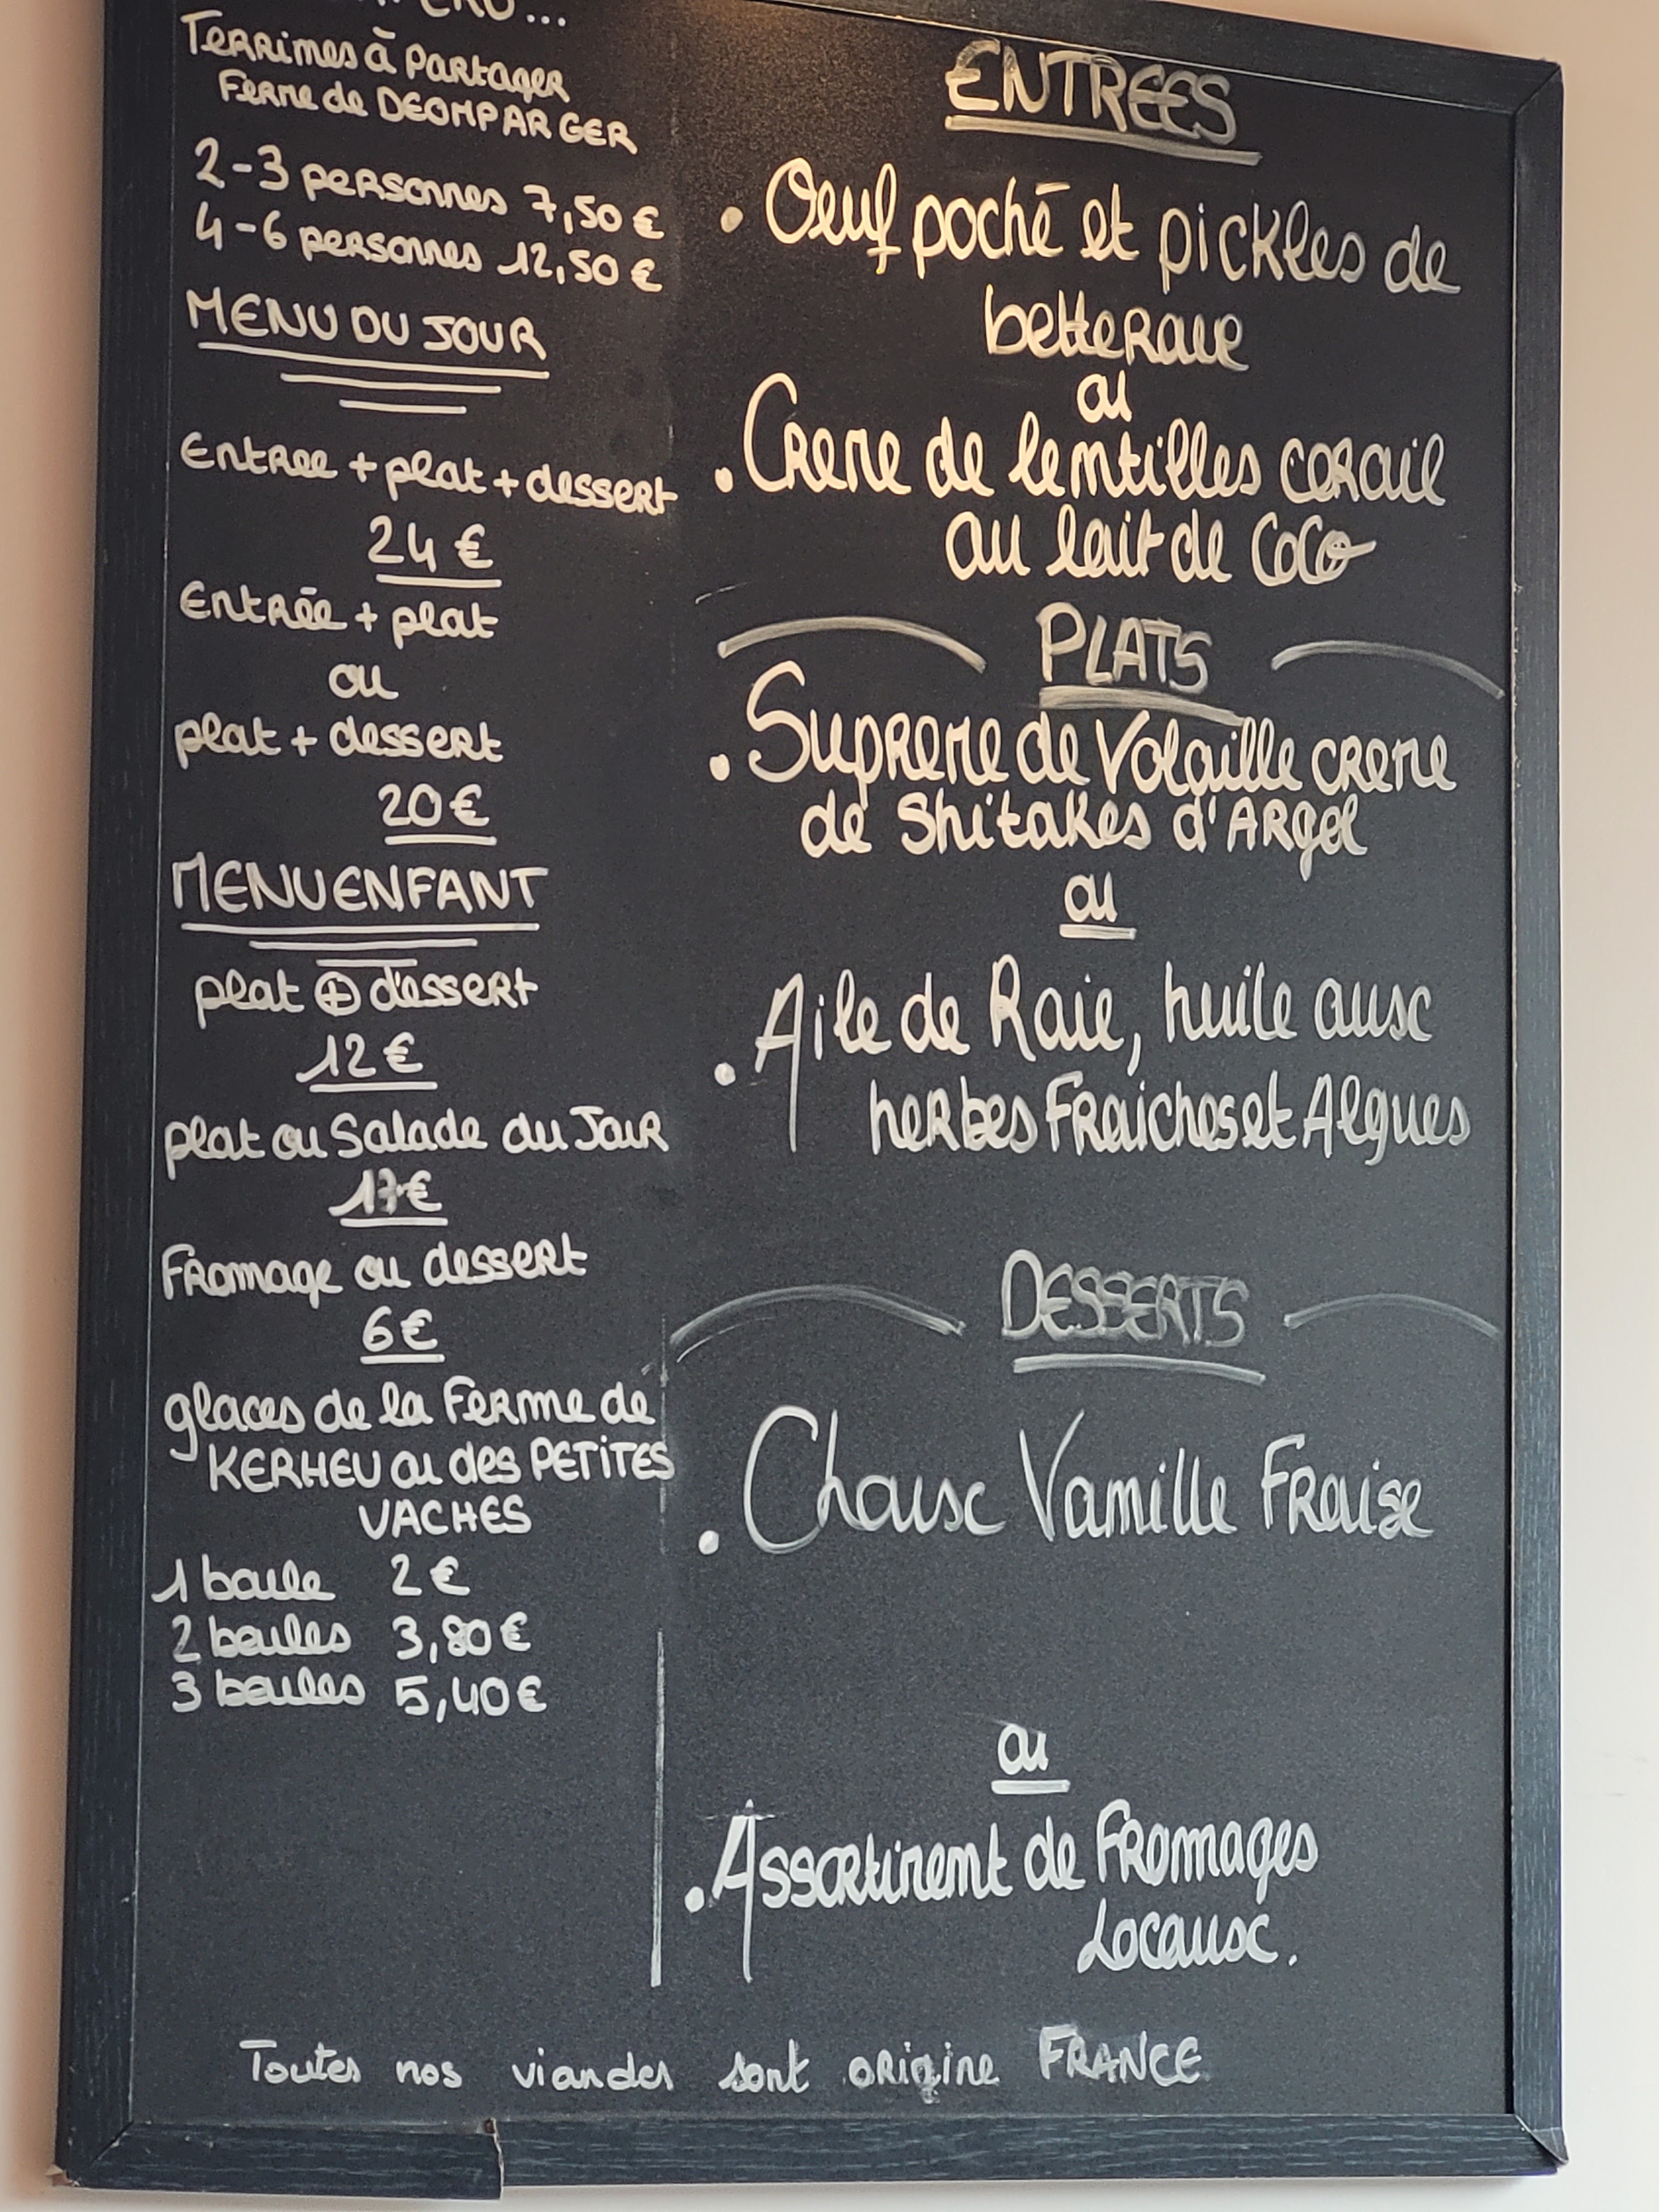 Terrines à Partager
Ferme de DEOMPARGER
2-3 personnes 7,50 €
4-6 personnes 12,50 €
MENU DU JOUR
Entree + plat + dessert
24 €
Entrée + plat
ou
plat + dessert
20 €
MENU ENFANT
plat + dessert
12 €
plat ou Salade du Jour
17 €
Fromage ou dessert
6 €
glaces de la Ferme de
KERHEU ou des PETITES
VACHES
1 boule 2 €
2 boules 3,80 €
3 boules 5,40 €
ENTREES
• Oeuf poché et pickles de
betterave
ou
• Creme de lentilles corail
au lait de Coco
PLATS
• Supreme de Volaille creme
de Shitakés d'Argol
ou
• Aile de Raie, huile aux
herbes Fraiches et Algues
DESSERTS
• Choux Vanille Fraise
ou
• Assortiment de Fromages
Locaux.
Toutes nos viandes sont origine FRANCE